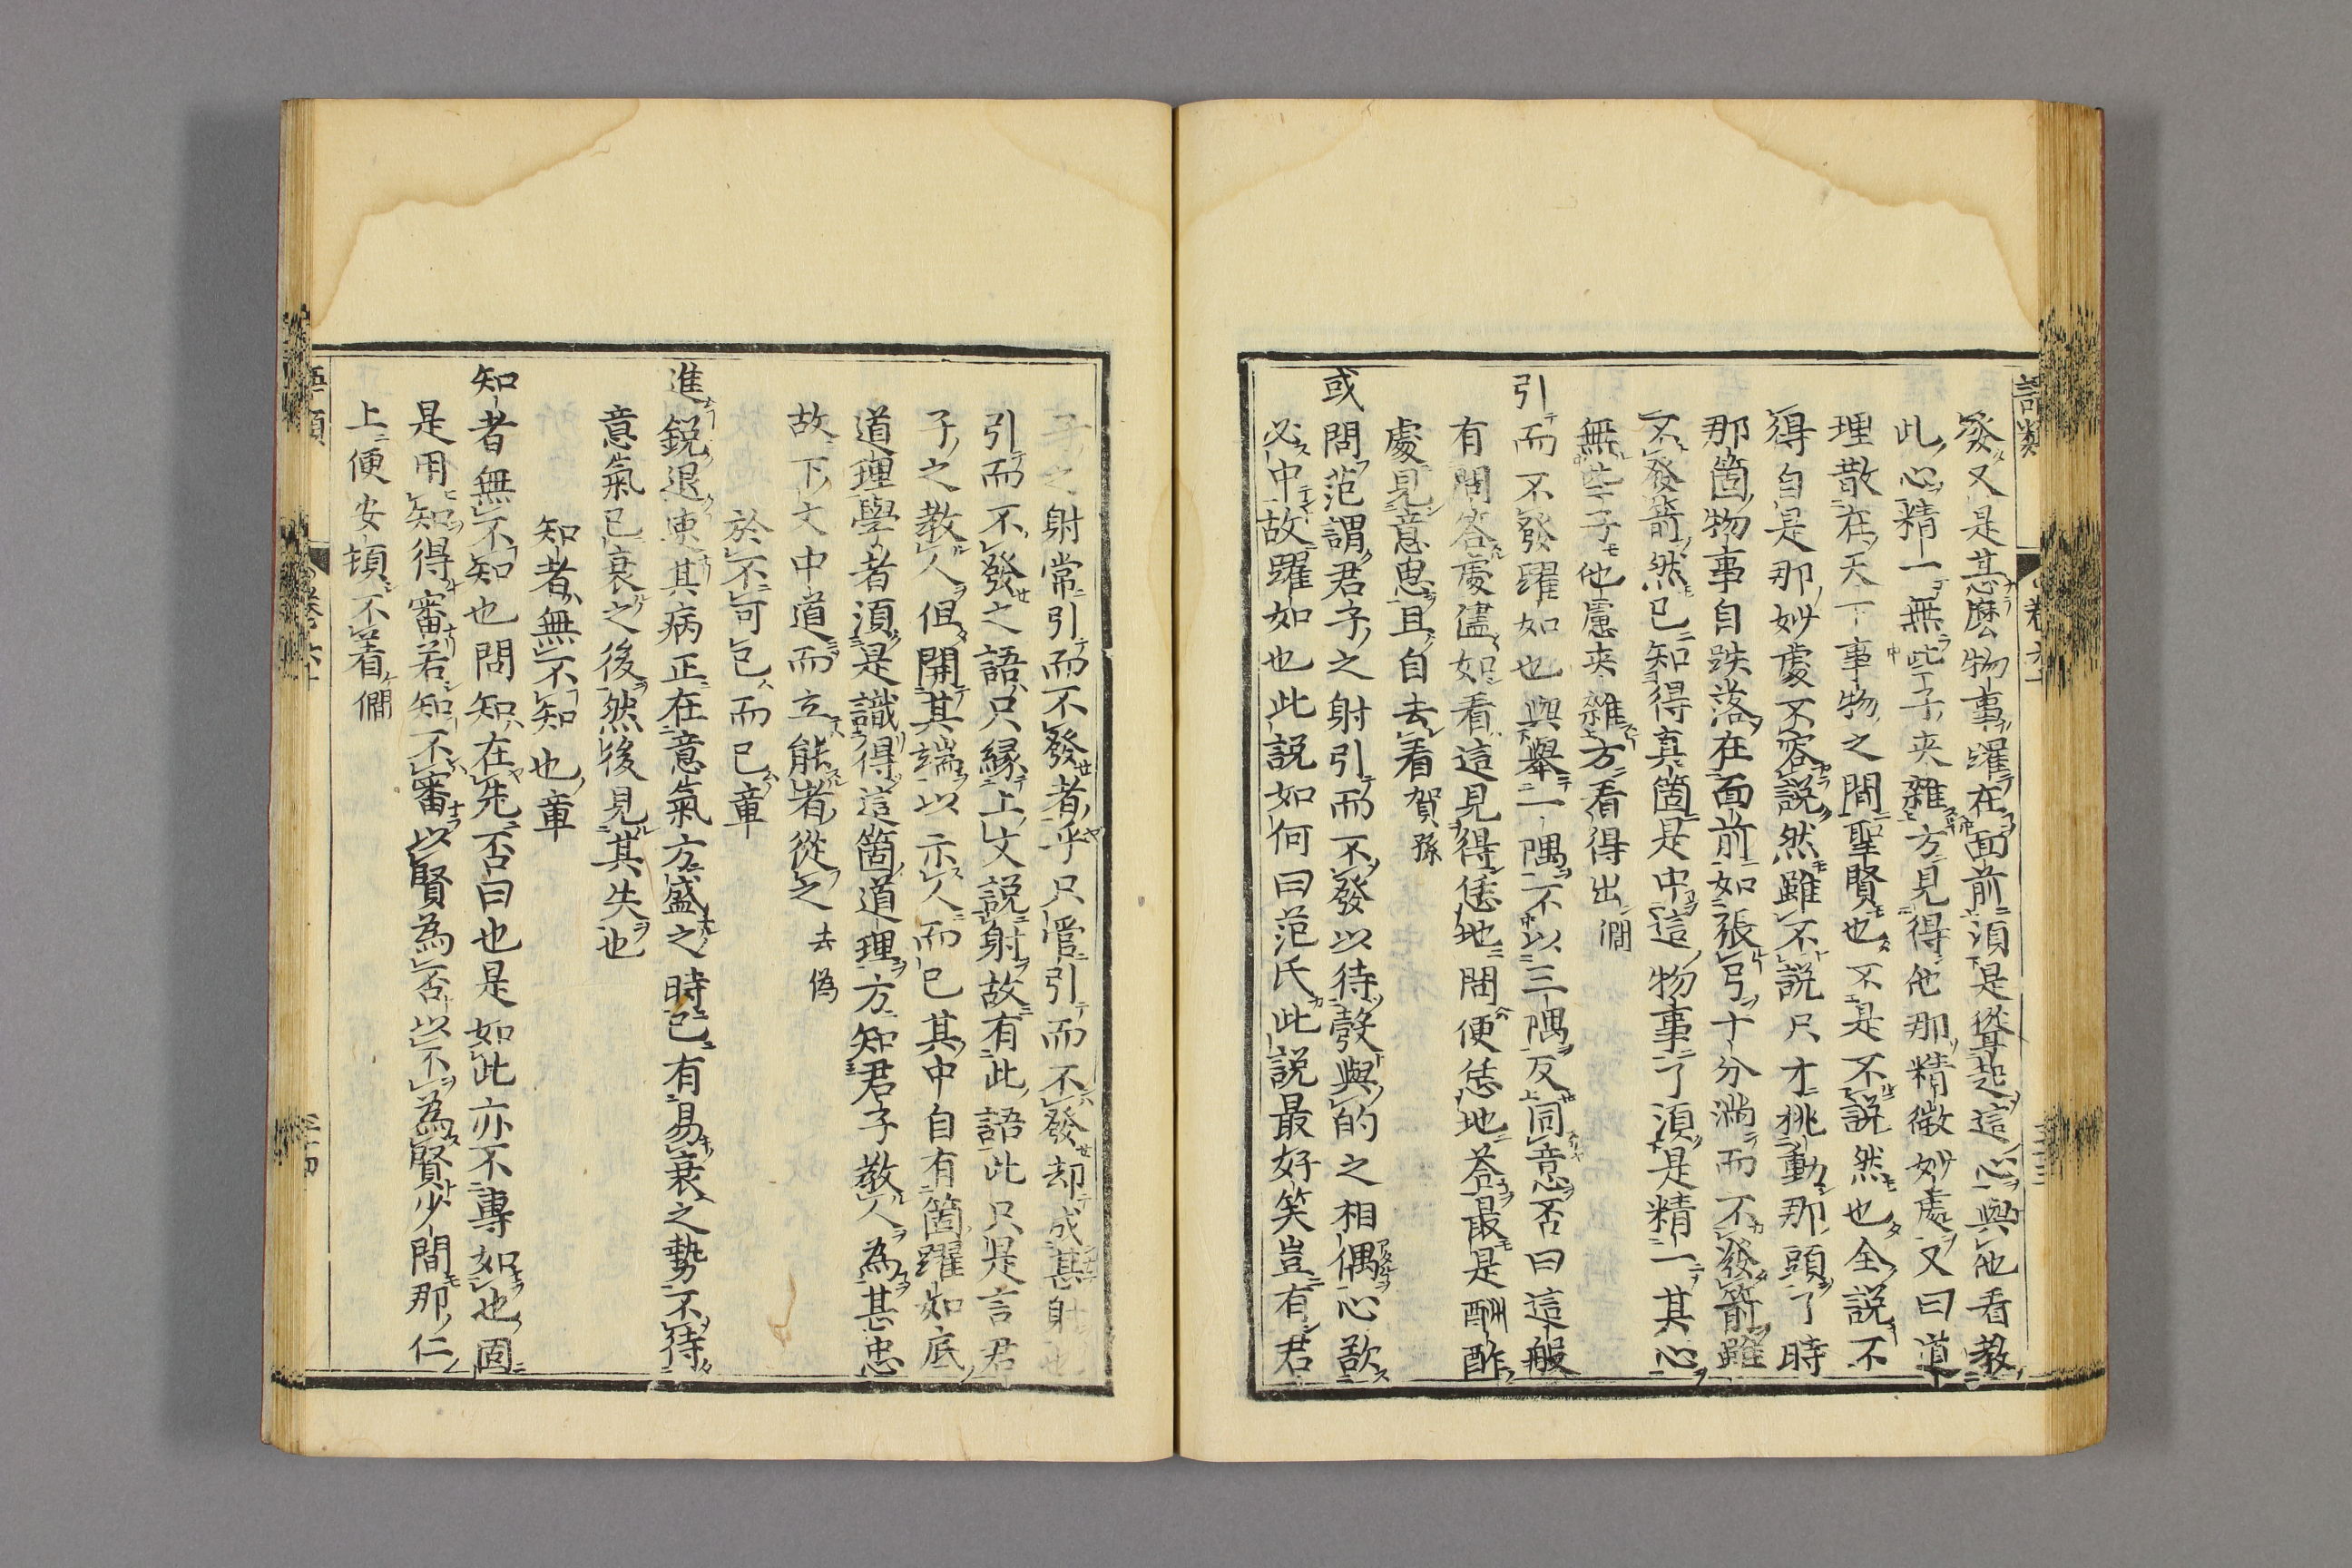 發又是甚麼物事躍在面前須是聳起這心與他看教
此心精一無些子夾雜方見得他那精微妙處又曰道
理散在天下事物之間聖賢也不是不說然也全說不
得自是那妙處不容說然雖不說只才挑動那頭了時
那箇物事自跌落在面前如張弓十分滿而不發箭雖
不發箭然已知得真箇是中這物事了須是精一其心
無些子他慮夾雜方看得出 僩
引而不發躍如也與舉一隅不以三隅反同意否曰這般
有問答處儘好看這見得恁地問便恁地答最是酬酢
處見意思且自去看 賀孫
或問范謂君子之射引而不發以待彀與的之相偶心欲
必中故躍如也此說如何曰范氏此說最好笑豈有君
子之射常引而不發者乎只管引而不發却成甚射也
引而不發之語只緣上文說射故有此語此只是言君
子之教人但開其端以示人而已其中自有箇躍如底
道理學者須是識得這箇道理方知君子教人為甚忠
故下文中道而立能者從之 去偽
於不可已而已章
進銳退速其病正在意氣方盛之時已有易衰之勢不待
意氣已衰之後然後見其失也
知者無不知也章
知者無不知也問知在先否曰也是如此亦不專如此固
是用知得審若知不審以賢為否以不為賢少間那仁
上便安頓不着 僩
語類 卷六十